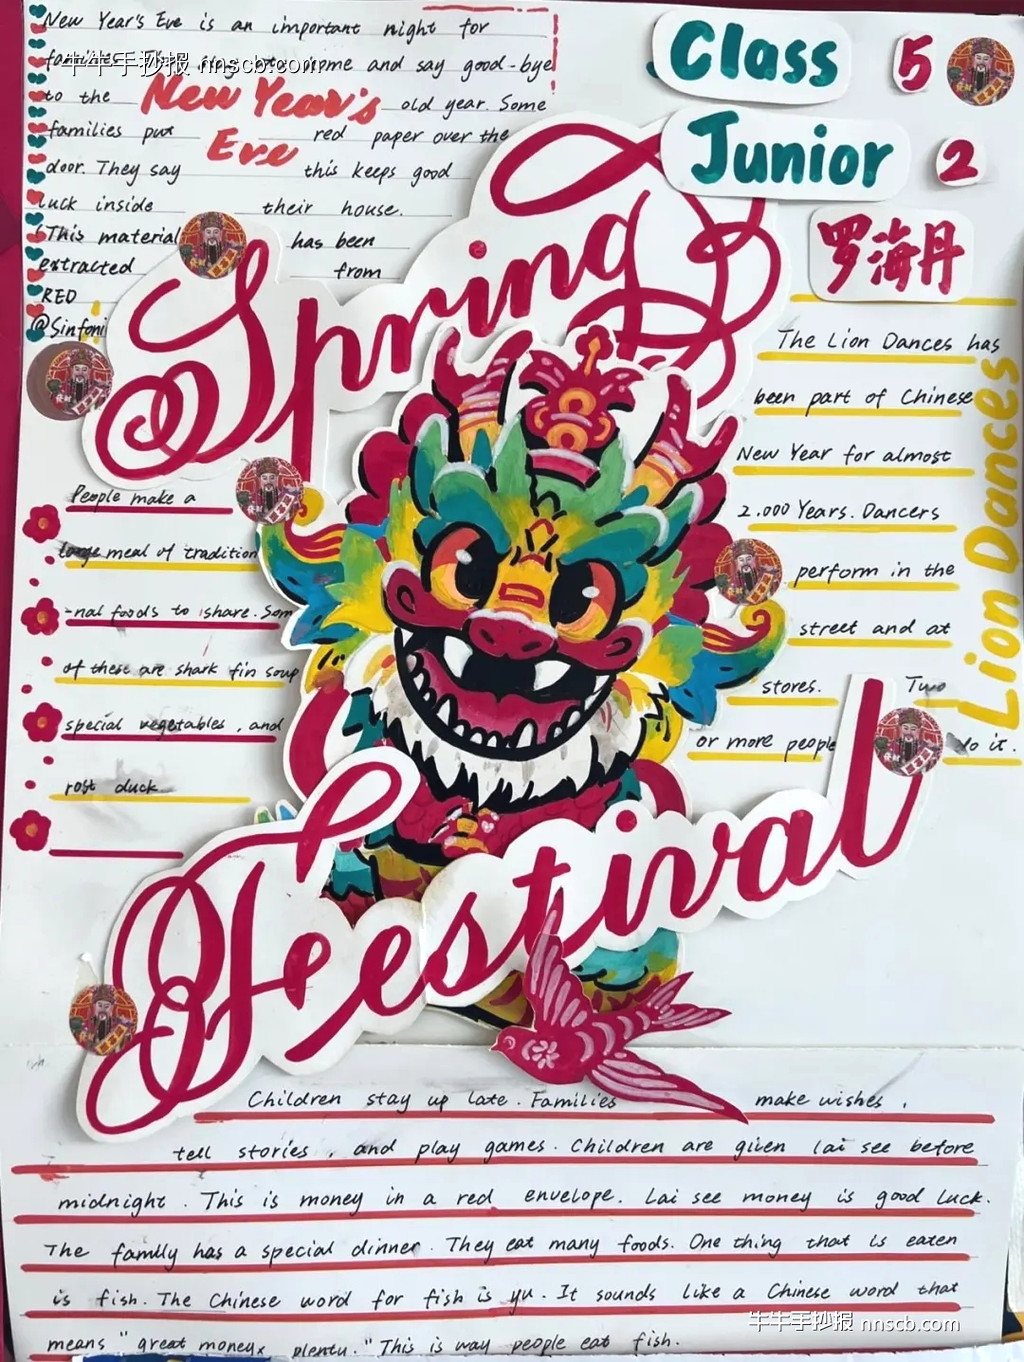 New Year's Eve is an important night for
牛牛手抄报 nnscb.com
home and say good-bye
to the old year. Some
New Year's
Eve
families put red paper over the
door. They say this keeps good
luck inside their house.
This material has been
extracted from
RED
@Sinfoni
Class 5
Junior 2
罗海丹
Spring
Festival
People make a
large meal of tradition
-nal foods to share. Som
of these are shark fin soup
special vegetables, and
rost duck
The Lion Dances has
been part of Chinese
New Year for almost
2.000 Years. Dancers
perform in the
street and at
stores. Two
or more people do it.
Lion Dances
Children stay up late. Families make wishes,
tell stories, and play games. Children are given lai see before
midnight. This is money in a red envelope. Lai see money is good luck.
The family has a special dinner. They eat many foods. One thing that is eaten
is fish. The Chinese word for fish is yu. It sounds like a Chinese word that
means "great money, plenty." This is way people eat fish.
牛牛手抄报 nnscb.com